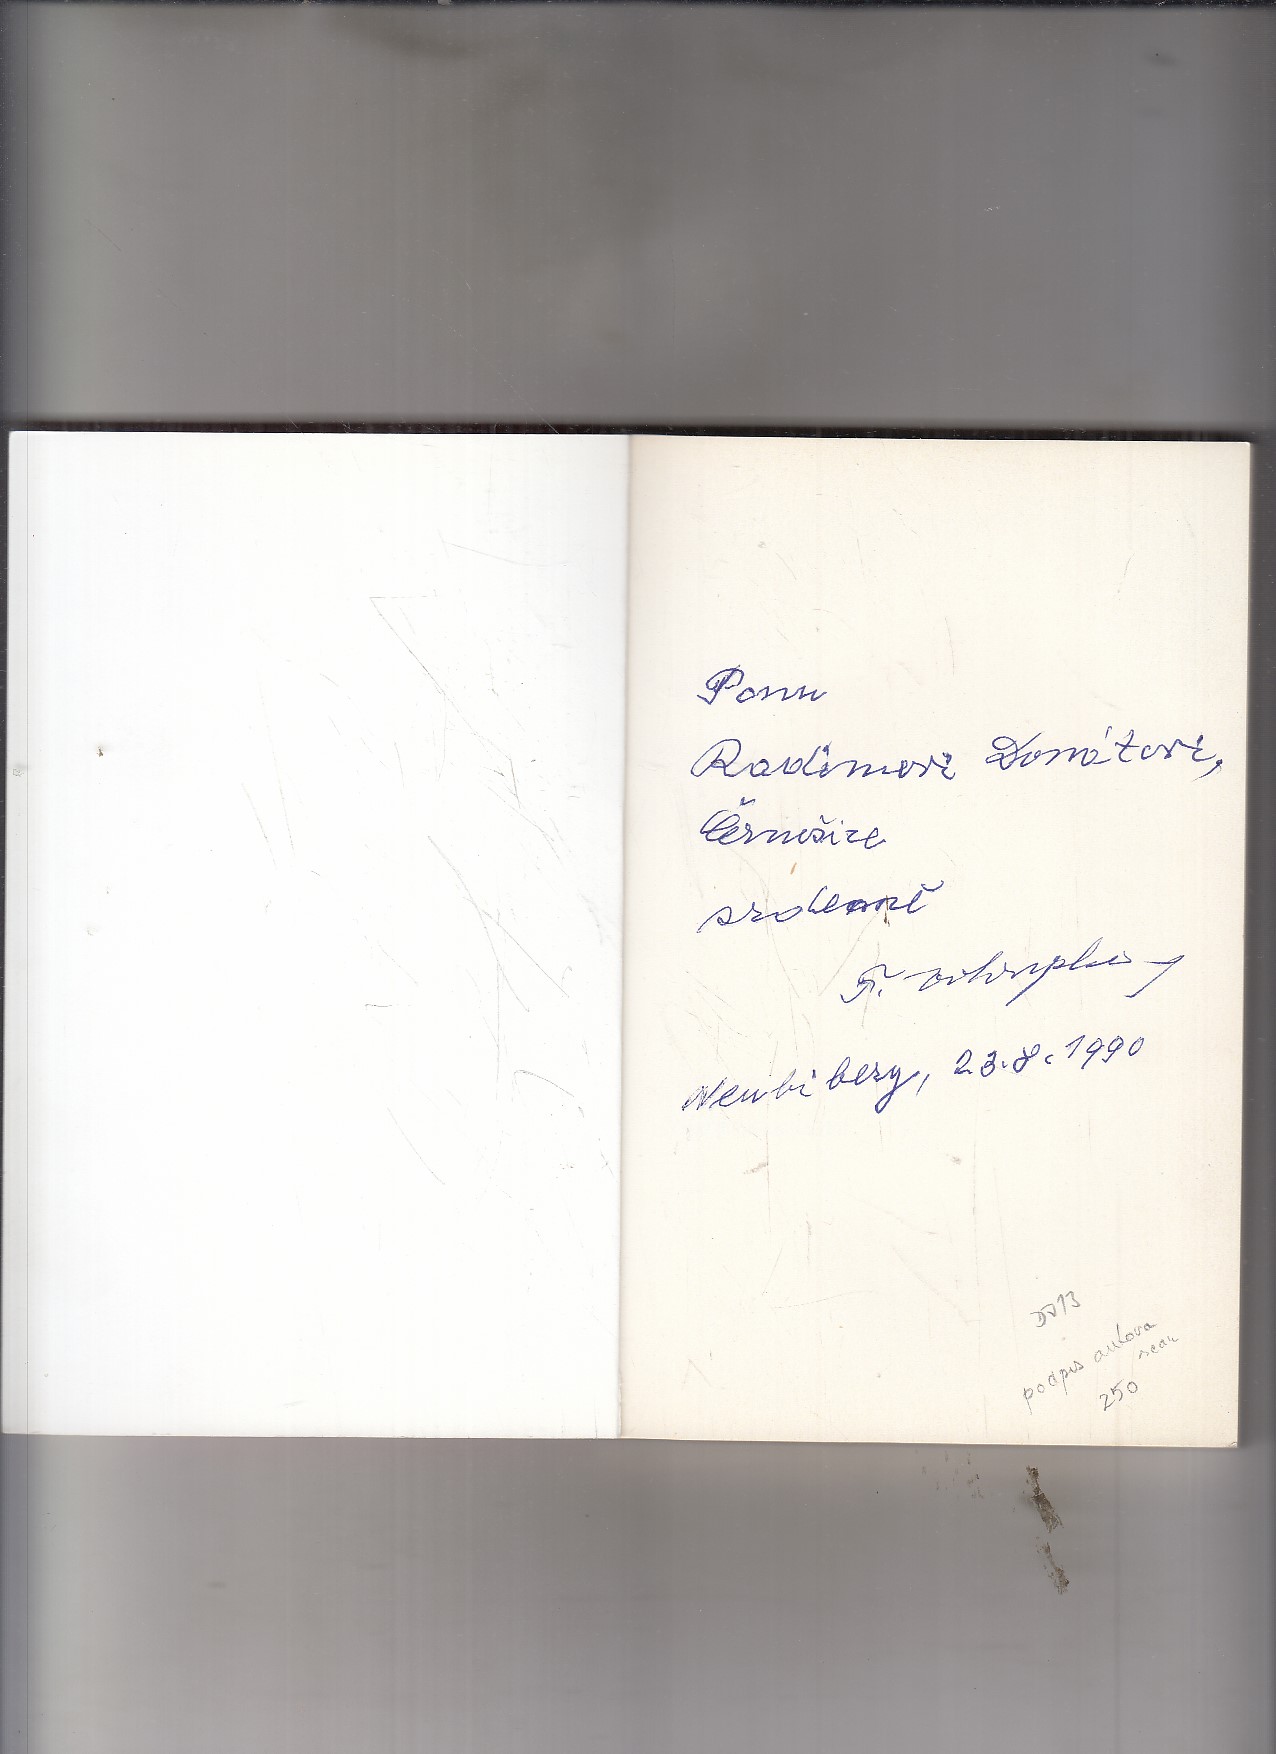 Panu
Radimovi Donátovi,
Černošice
srdečně
F.
Neubiberg, 23.8.1990
podpis autora
scan
250